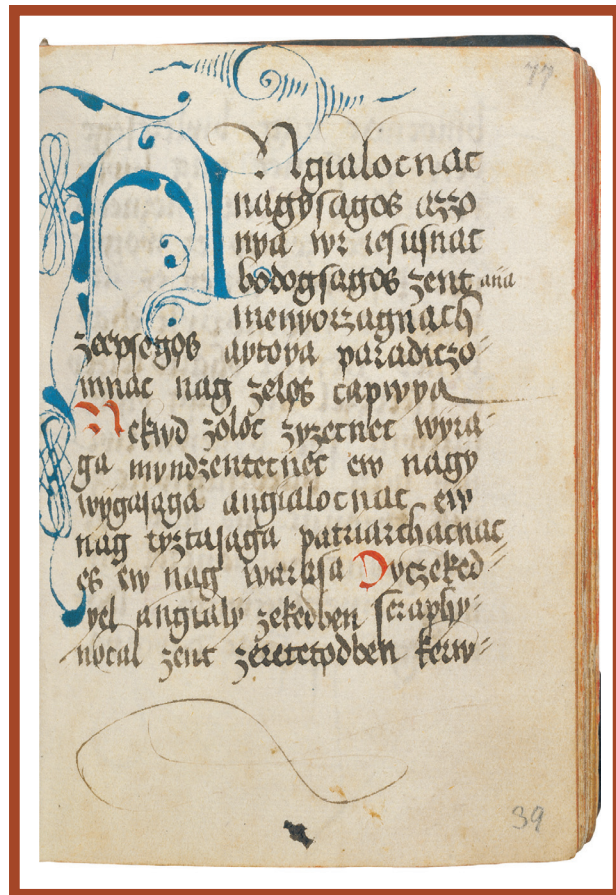 77
ANgialocnac
nagÿsagos azzo
nÿa wr iesusnac
bodogsagos zent ana
menÿorzagnach
zeepsegos aÿtoÿa paradiczo⸗
mnac nag zelos capwÿa
Nekwd zoloc zÿzecnec wÿra⸗
ga mÿndzentecnec ew nagÿ
wÿgasaga angialocnac ew
nag tÿztasaga patriarchacnac
es ew nag warasa Dÿczeked⸗
ÿel angialÿ zekedben seraphÿ⸗
nocal zent zeretetodben kerw⸗
39